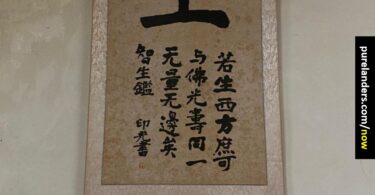 若生西方庶可
与佛光壽同一
无量无邊矣
智生鑑 印光書
purelanders.com/now